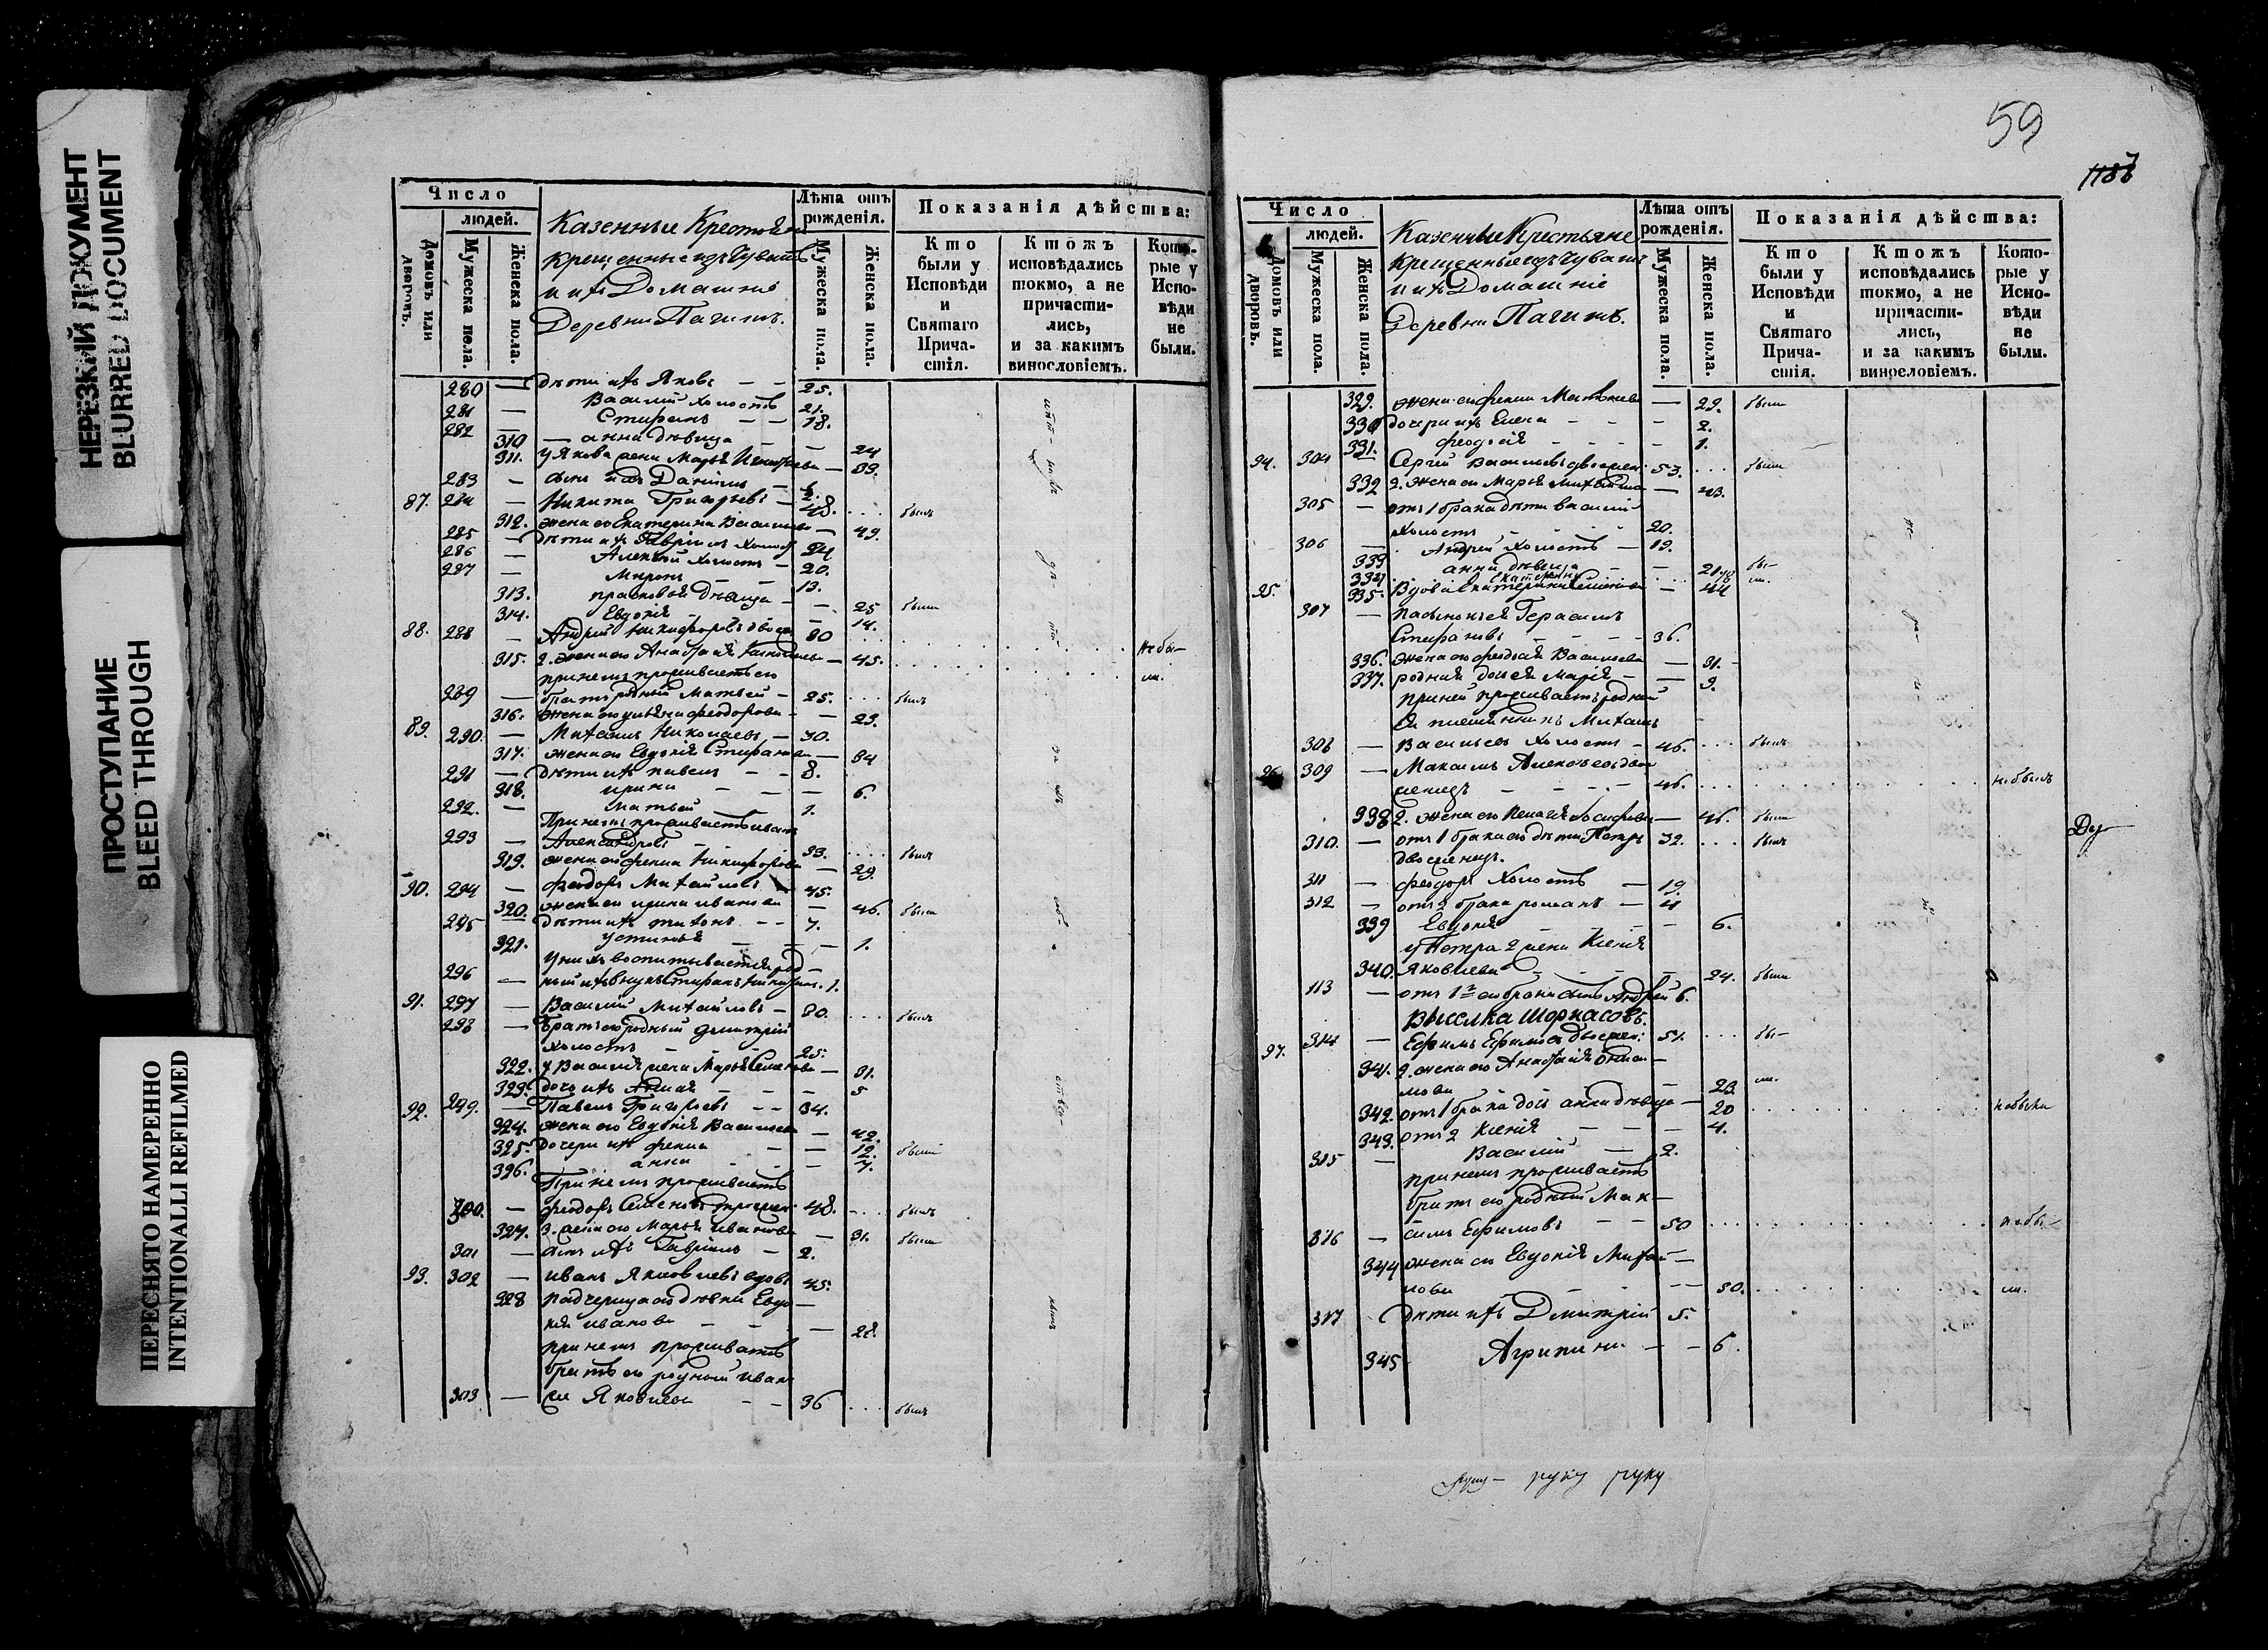 НЕРЕЗКИЙ ДОКУМЕНТ
BLURRED DOCUMENT
ПРОСТУПАНИЕ
BLEED THROUGH
ПЕРЕСНЯТО НАМЕРЕННО
INTENTIONALLI REFILMED
Число
людей.
Домовъ или дворовъ.
Мужеска пола.
Женска пола.
Казенные Крестьяне
крещенные изъ Чувашъ
и ихъ Домашніе
Деревни
Лѣта отъ рождения.
Мужеска пола.
Женска пола.
Показанія дѣйства:
Кто были у Исповѣди и Святаго Прича-стія.
Ктожъ исповѣдались токмо, а не причасти-лись, и за какимъ винословіемъ.
Кото-рые у Испо-вѣди не были.
280 — дѣти ихъ Яковъ — — 25.
281 — Василій холостъ 21.
282 — Стефанъ — — 18.
310 — анна дѣвица — — 24
311. у Якова жена Марья — 33.
283 — сынъ ихъ Даніилъ —
87. 284 — Никита Григорьевъ — 48. ... былъ
312. жена его Екатерина Васильева — 49.
285 — дѣти ихъ Гавріилъ холостъ 24
286 — Алексѣй холостъ — 20.
287 — Миронъ — — 13.
313. прасковья дѣвица — — 25 были
314. Евдокія — — 14.
88. 288 — Андрей Никифоровъ двоеж 80 не бы—
315. 2. жена его Анастасія — 45. ли.
при немъ проживаетъ его
289 — братъ родный Матвей — 25. ... былъ
316. жена его ульяна феодорова — — 23.
89. 290 — Михаилъ Николаевъ — 30.
317. жена его Евдокія Стефанова — 34
291 — дѣти ихъ павелъ — — 8.
318. ирина — — — 6.
292. — матвей — — 1.
При немъ проживаетъ иванъ
293 — Александровъ — 33. ....
319. жена его фекла Никифорова — 29. былъ
90. 294 — феодоръ Михайловъ — 45.
320. жена его ирина иванова — 46. были
295 — дѣти ихъ тихонъ — — 7.
321. устинья — — — 1.
у нихъ воспитывается род—
296 — ный ихъ внукъ Стефанъ 1.
91. 297 — Василій Михайловъ — 30. ... былъ
298 — Братъ его родный дмитрій
холостъ — — 25.
322. у Василія жена Марья Семенова — 31.
323. дочь ихъ — — — 5
92. 299. — Павелъ Григорьевъ — — 34.
324. жена его Евдокія Васильева — 42.
325. дочери ихъ фекла — — 12. были
326. анна — — — 7.
При немъ проживаетъ
300. — феодоръ Семеновъ троежен: 48. ... былъ
327. 3. жена его Марья иванова — 31. были
301 — сынъ ихъ Гавріилъ — 2.
93. 302 — иванъ Яковлевъ вдовъ 45.
328 падчерица его дѣвка Евдо—
кія иванова — — — 28.
при немъ проживаетъ
братъ его родный иванъ
303 — же Яковлевъ — — 36 ... былъ
59
Число
людей.
Домовъ или дворовъ.
Мужеска пола.
Женска пола.
Казенные Крестьяне
крещенные изъ Чувашъ
и ихъ Домашніе
Деревни
Лѣта отъ рождения.
Мужеска пола.
Женска пола.
Показанія дѣйства:
Кто были у Исповѣди и Святаго Прича-стія.
Ктожъ исповѣдались токмо, а не причасти-лись, и за какимъ винословіемъ.
Кото-рые у Испо-вѣди не были.
329. жена его фекла Матвѣева — 29. были
330 дочери ихъ Елена — — — 2.
331. феодосія — — — 1.
94. 304 — Сергѣй Васильевъ двоежен: 53. ... были
332 2. жена его Марья — 43.
305 — отъ 1 брака дѣти василій
холостъ — — — 20.
306 — Андрей холостъ — 19.
333 анна дѣвица — — 21 бы—
334. Екатерина ли.
95. 335. Вдова Екатерина — 44
307 — пасынокъ ея Герасимъ
Стефановъ — — — 36.
336. жена его феодосія Васильева — 31.
337. родная дочь ея Марія — — 9.
при ней проживаетъ родный
ея племянникъ Михаилъ
308 — Васильевъ холостъ — 46. ... былъ
96. 309 — Максимъ Алексѣевъ двое
женецъ — — — 46. ... не былъ
338 2. жена его — 46. были
310. — отъ 1 брака его дѣти Петръ 32. ... былъ
двоеженецъ.
311 — феодоръ холостъ — 19.
312 — отъ 2 брака романъ — 11
339 Евдокія — — — 6.
у Петра 2 жена Ксенія
340. Яковлева — — — 24. были
113 — отъ 1го его брака сынъ Андрей 6.
Выселка Шоркасовъ.
97. 314 — Ефимъ Ефимовъ двоежен: 51. ... бы—
341. 2. жена его Анастасія
мова — 23. ли.
342. отъ 1 брака дочь анна дѣвица — 20 не была
343. отъ 2 Ксенія — — — 4.
315 — Василій — 2.
при немъ проживаетъ
братъ его родный Мак—
316 — симъ Ефимовъ — — 50 не бы—
344 жена его Евдокія Михай—
лова — — — 50. ли.
317 дѣти ихъ Дмитрій 5.
345 Агрипина — — 6.
руку руку